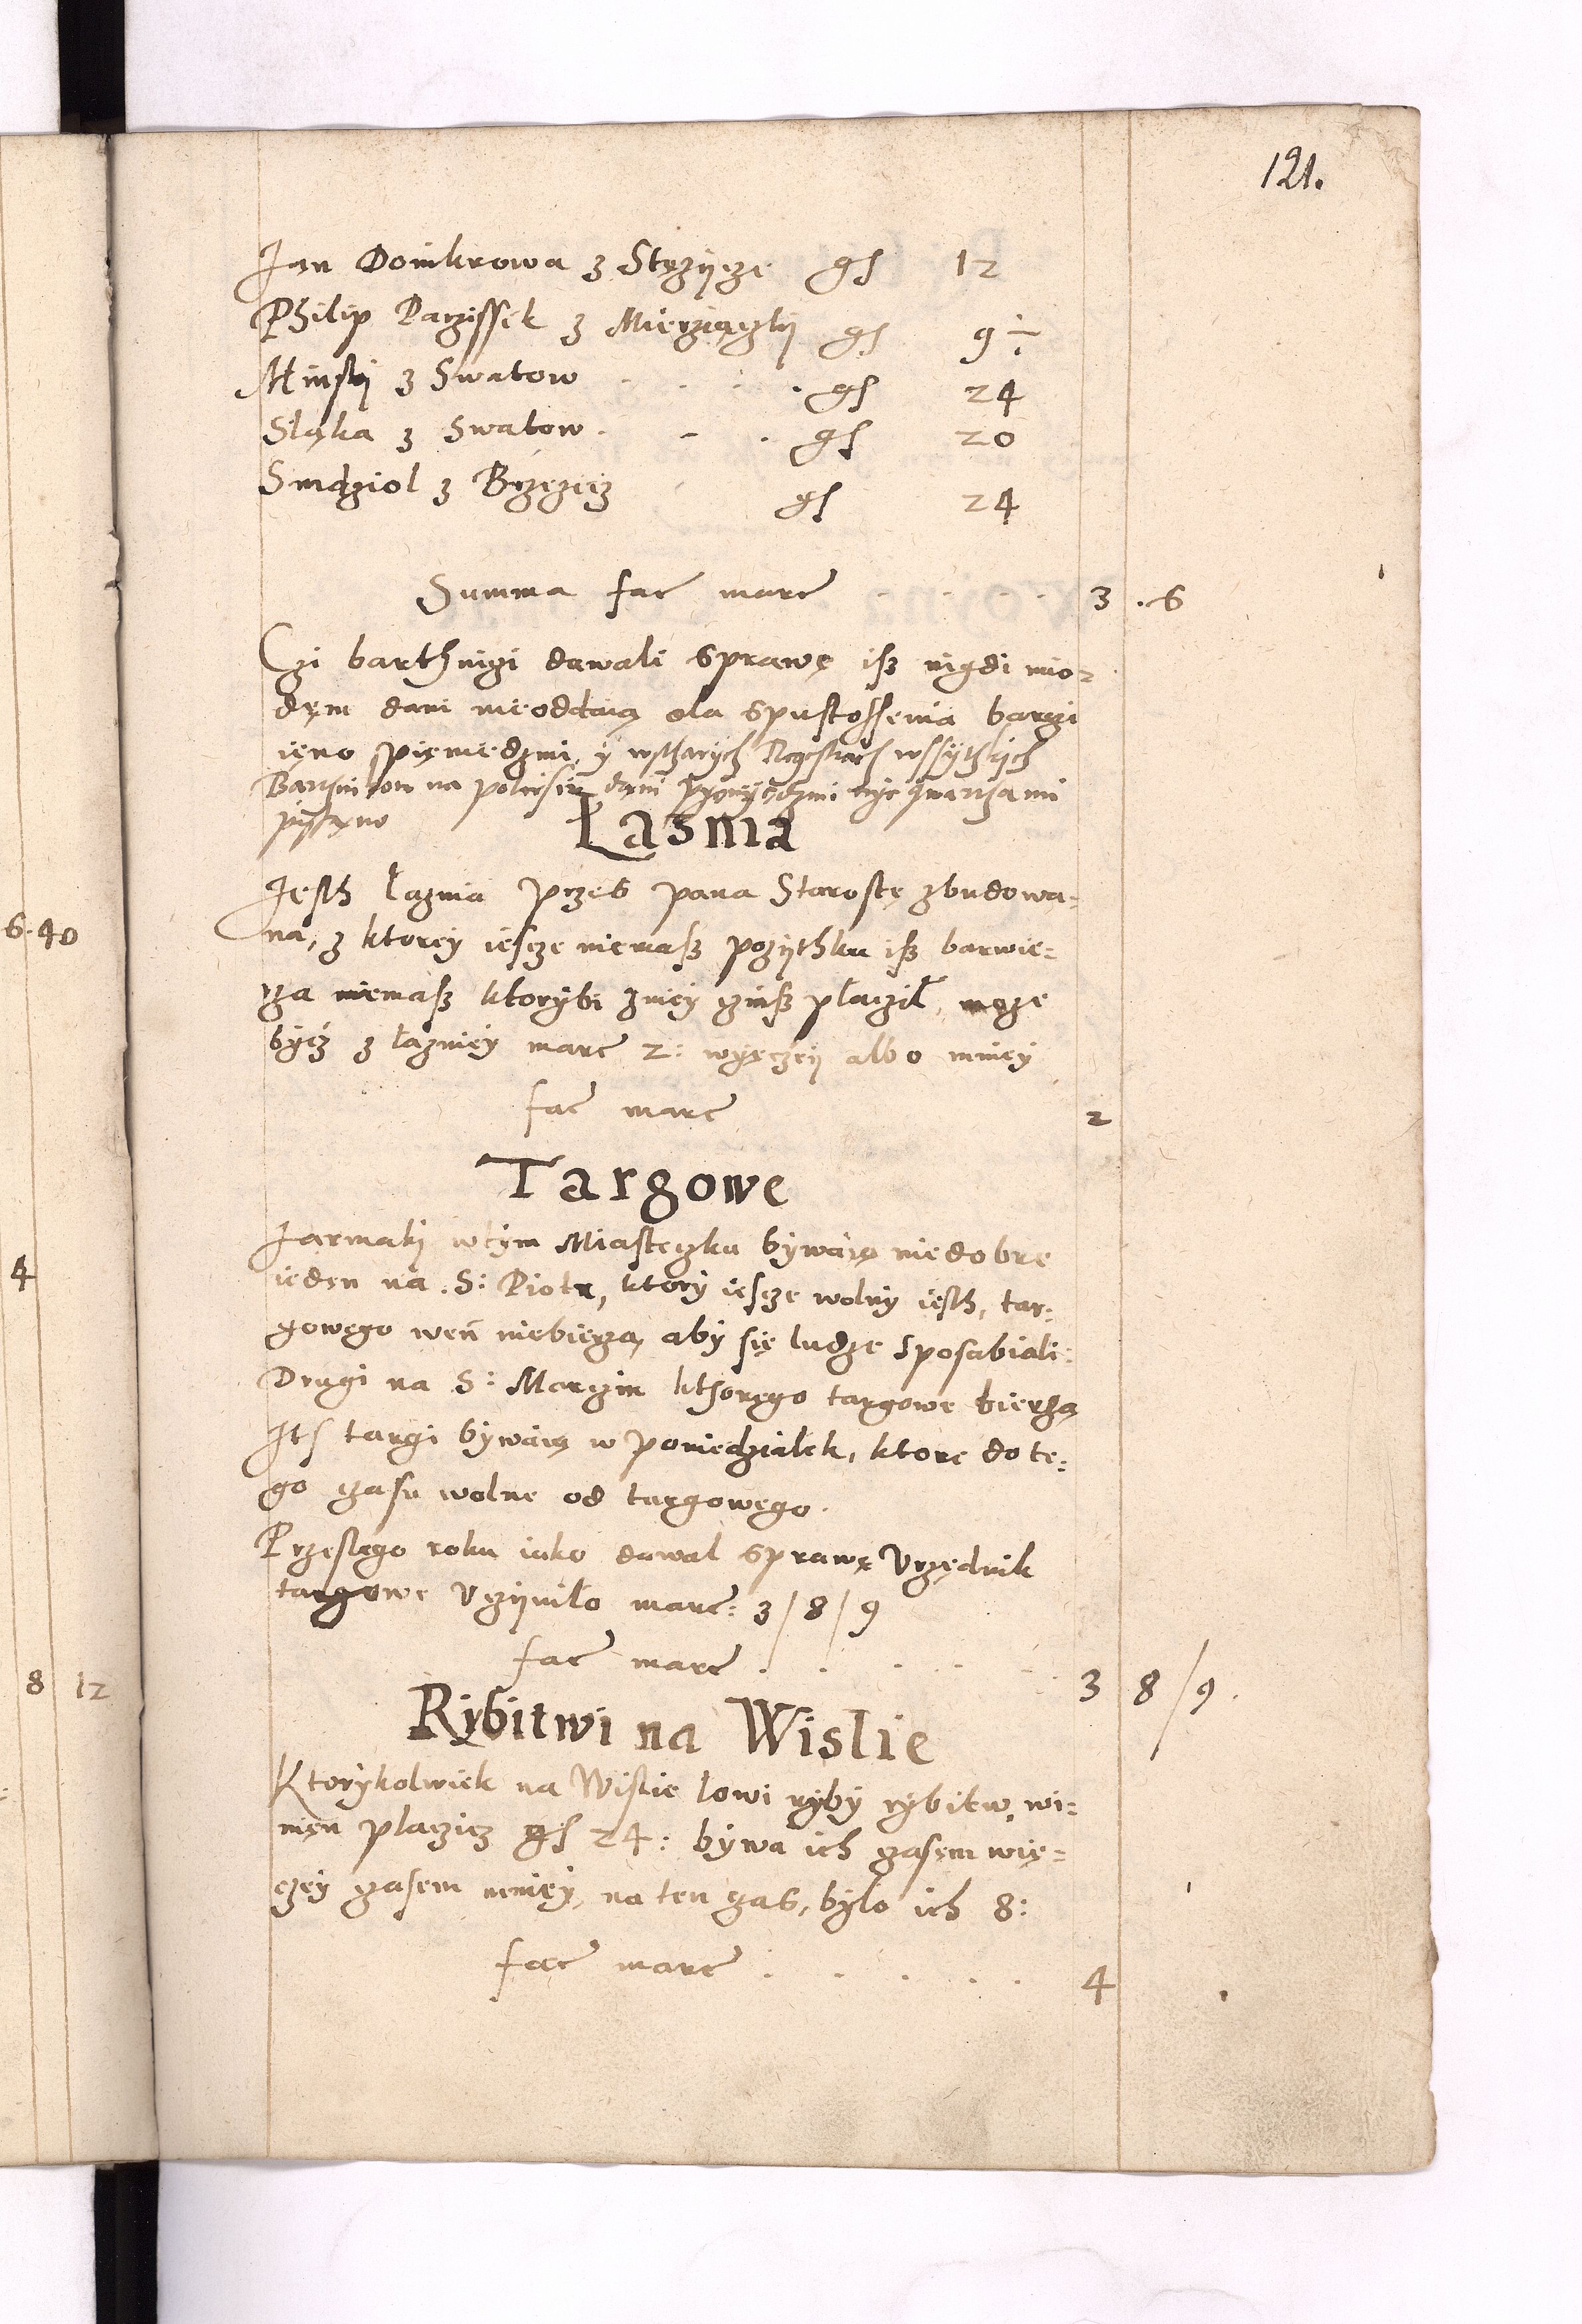 121.
Jan Domkrowa z Stęzycze gs 12
Philip Parzissek z Mierziączki gs 9 ÷
Minski z Swatow . . . . gs 24
Sląka z Swatow . - . gs 20
Smdziol z Brzezicz gs 24
Summa fac marc . . . . . 3 . 6
Czi barthnigi dawali sprawę isz nigdi mio-
dęm dani nieoddaią dla spustossenia barczi
ięno pięniedzmi, y wstharych Regestrach wssythkych
Barthnikow na polesiu dani pyęnyędzmi nye thwarzami
pissęno
Łaznia
Jesth łaznia przes pana Starostę zbudowa-
na, z ktorey iescze niemasz pozythku isz barwie-
rza niemasz ktorybi zniey czinsz płacził, moze
bycz z łazniey marc 2: wyęczey albo mniey
fac marc 2
Targowe
Jarmaki wtym Miasteczku bywaią niedobre
ieden na S: Piotr, ktory iescze wolny iesth, tar-
gowego weń niebierzą, aby się ludze sposabiali:
Drugi na S: Marczin kthorego targowe bierzą
Its targi bywaią w poniedzialek, ktore do te-
go czasu wolne od targowego.
Przeslego roku iako dawal sprawę Vrzędnik
targowe Vczynilo marc: 3/8/9
fac marc . . . . . 3 8/9.
Rybitwi na Wislie
Ktorykolwiek na Wislie lowi ryby rybitw, wi-
nien placzicz gs 24: bywa ich czasem wię-
czey czasem mniey, na ten czas, bylo ich 8:
fac marc . . . . . 4
6. 40
4
8 12